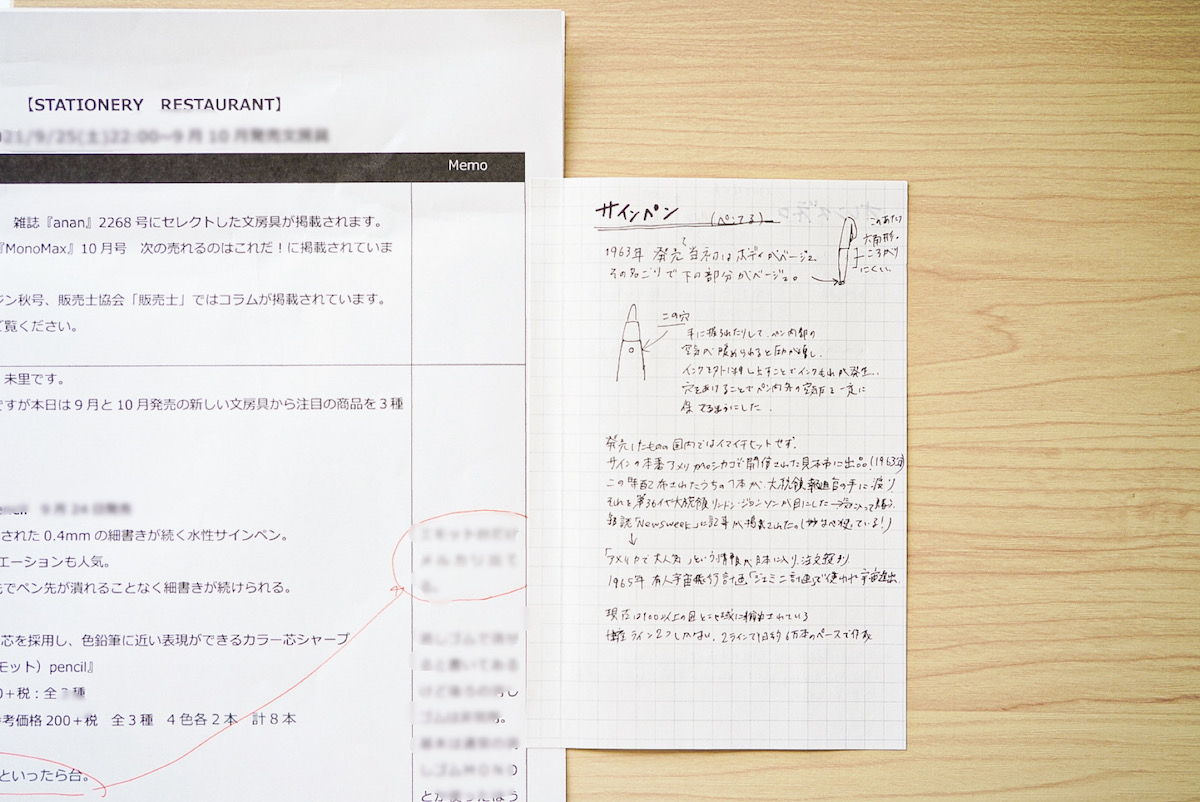 【STATIONERY RESTAURANT】
21/9/25(土)22:00~9月10月発売文房具
Memo
雑誌『anan』2268号にセレクトした文房具が掲載されます。
『MonoMax』10月号 次の売れるのはこれだ！に掲載されていま
ジン秋号、販売士協会「販売士」ではコラムが掲載されています。
ご覧ください。
未里です。
ですが本日は9月と10月発売の新しい文房具から注目の商品を3種
9月24日発売
された0.4mmの細書きが続く水性サインペン。
エーションも人気。
先でペン先が潰れることなく細書きが続けられる。
芯を採用し、色鉛筆に近い表現ができるカラー芯シャープ
モット）pencil』
0＋税：全3種
考価格200＋税 全3種 4色各2本 計8本
といったら台。
サインペン (ぺんてる)
1963年 発売 当初はボディがベージュ
その名ごりで下の部分がベージュ。
このあたり
六角形。
ころがり
にくい。
この穴
手に握られたりして、ペン内部の
空気が暖められると圧が増し、
インクを外に押し出すことでインクもれが発生。
穴をあけることでペン内外の空気圧を一定に
保てるようにした。
発売したものの国内ではイマイチヒットせず。
サインの本番アメリカのシカゴで開催された見本市に出品。(1963年)
この時配布されたうちの1本が、大統領報道官の手に渡り
それを第36代大統領リンドン・ジョンソンが目にした
雑誌「Newsweek」に記事が掲載された。
↓
「アメリカで大人気」という情報が日本に入り、注文殺到
1965年 有人宇宙飛行計画「ジェミニ計画」で使われ宇宙進出
現在は100以上の国と地域に輸出されている
ライン2つしかない。2ラインで1日約6万本のペースで作成